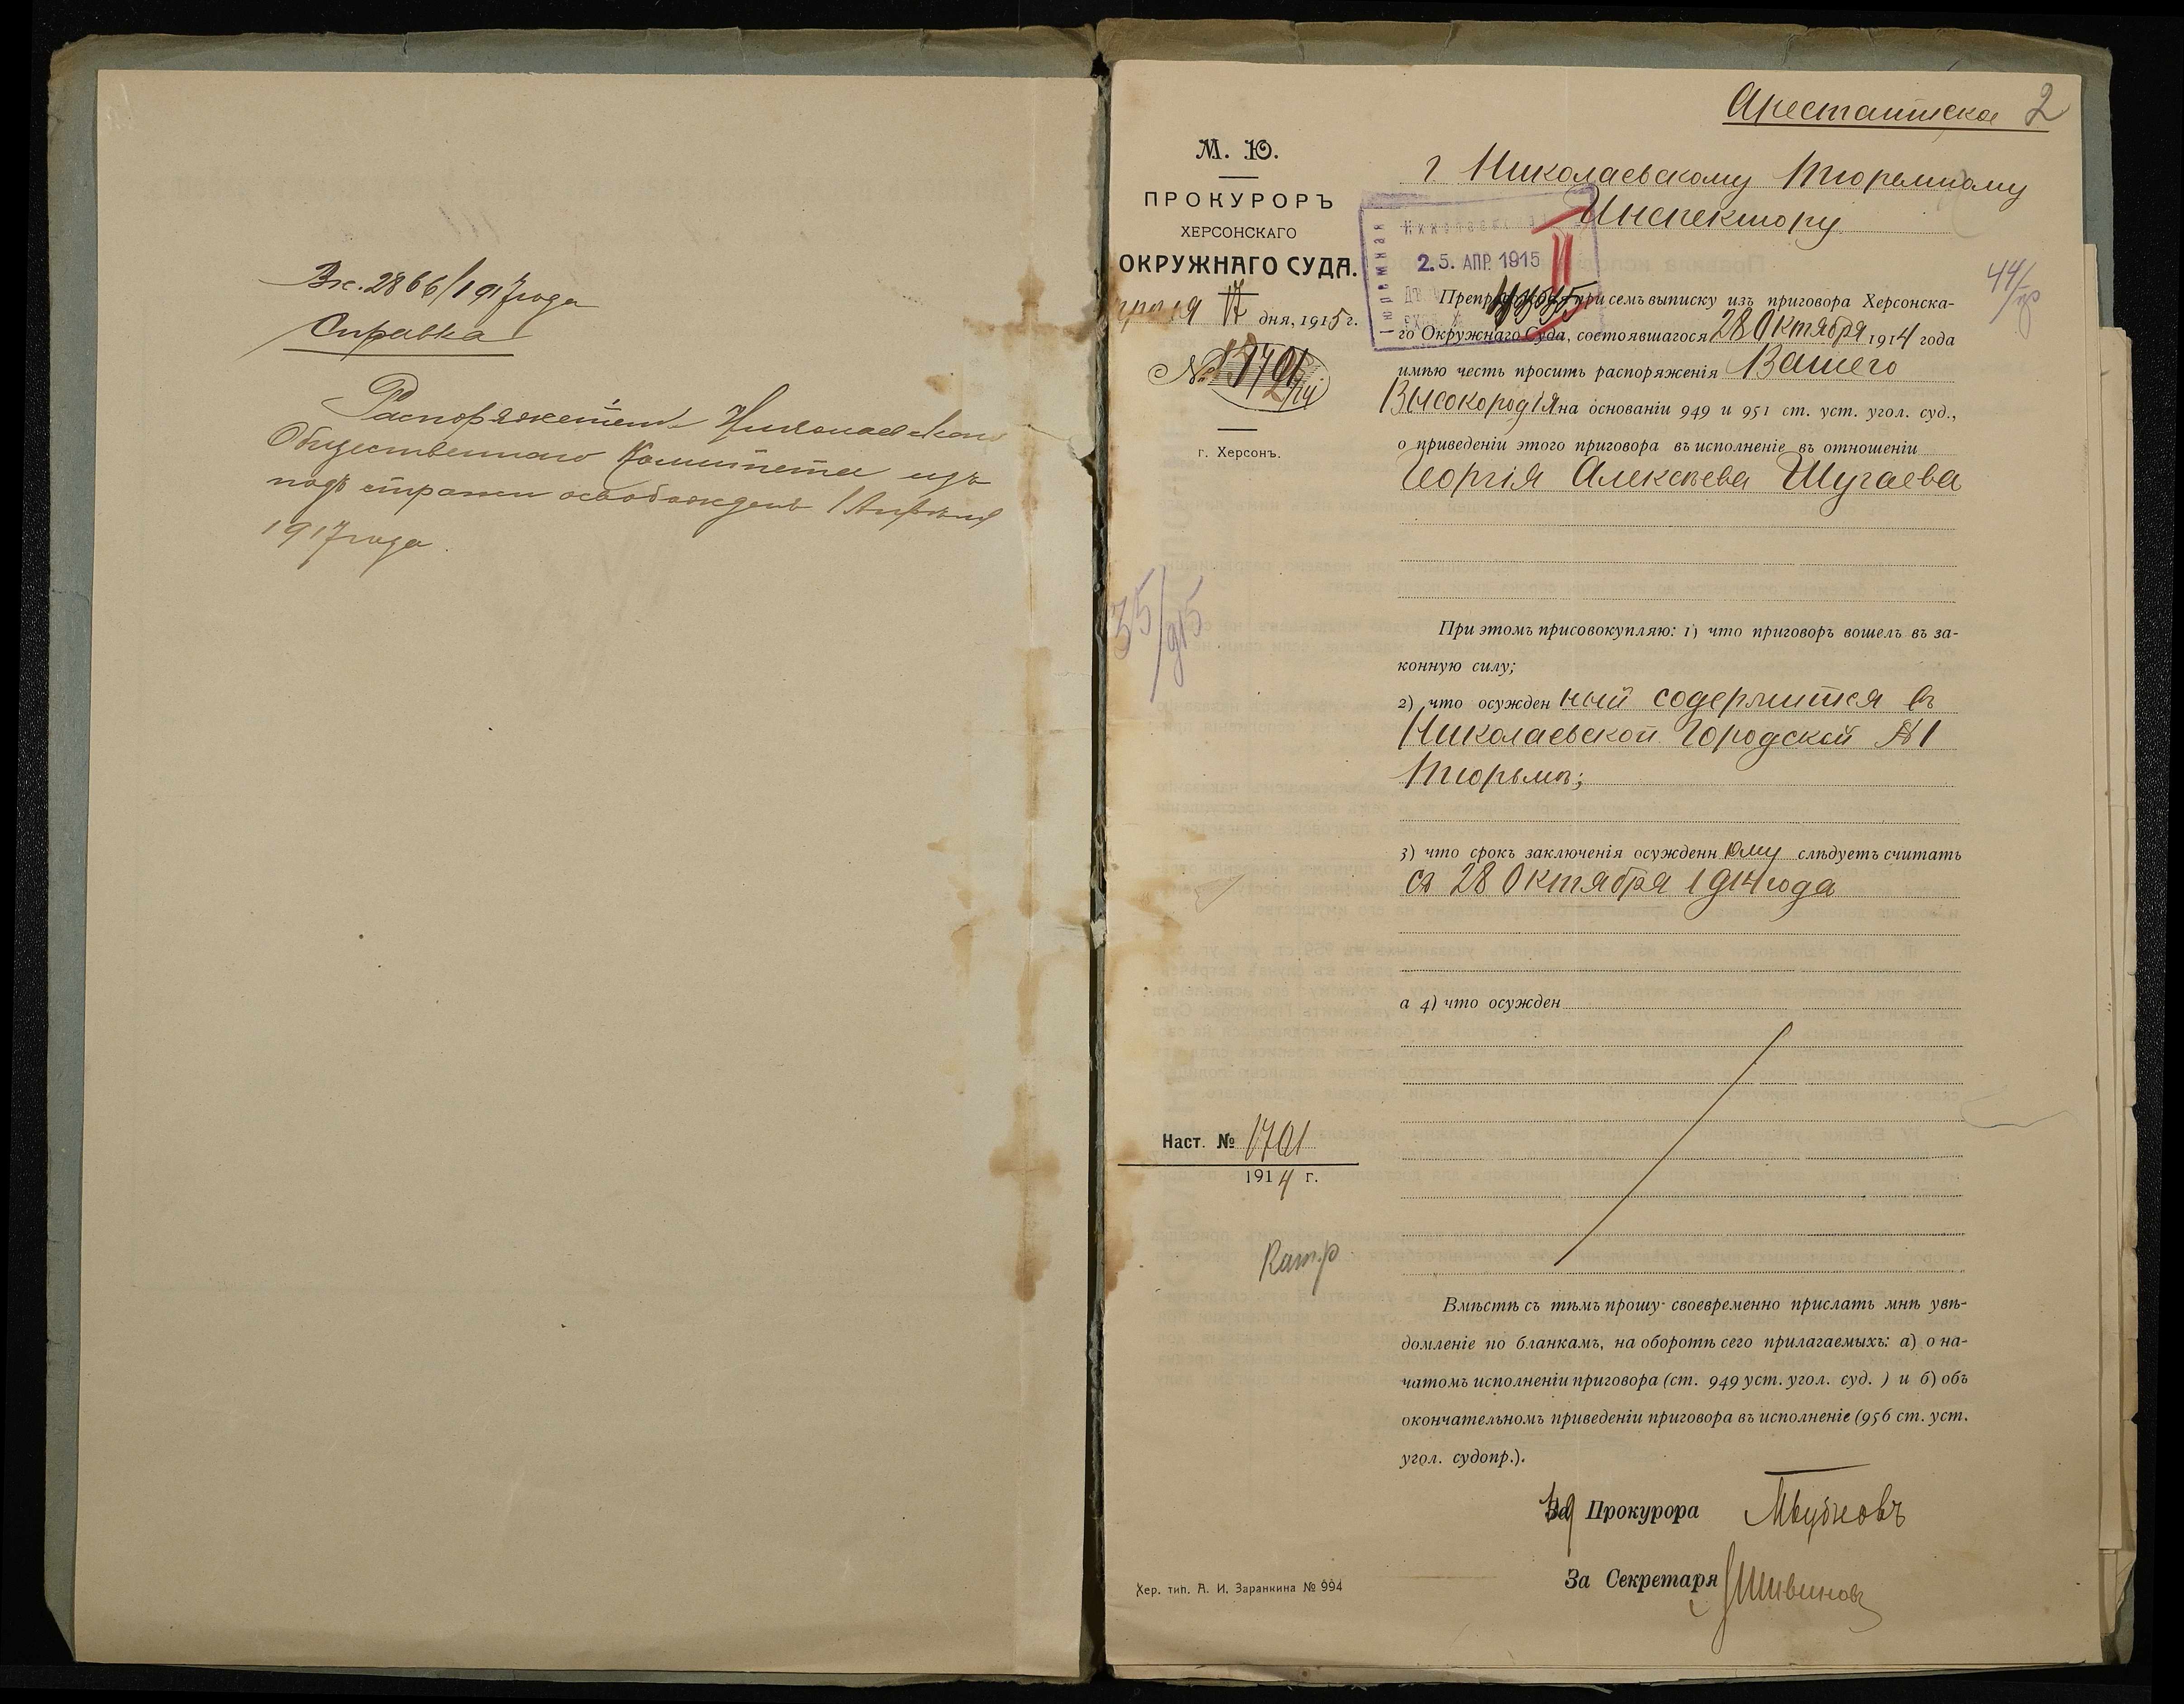 Вх. 2866/1917 года
Справка
Распоряженіемъ Николаевскаго
Общественнаго Комитета изъ
подъ стражи освобожденъ 1 Апрѣля
1917 года.
Арестантская 2
М. Ю.
ПРОКУРОРЪ
ХЕРСОНСКАГО
ОКРУЖНАГО СУДА.
17 дня, 1915 г.
№
г. Херсонъ.
35/915
Наст. № 1701
1914 г.
Хер. тип. А. И. Заранкина № 994
г Николаевскому Тюремному
Инспектору
Тюремная
25. АПР. 1915
44/пр
Препровождая при семъ выписку изъ приговора Херсонска-
го Окружнаго Суда, состоявшагося 28 Октября 1914 года
имѣю честь просить распоряженія Вашего
Высокородія на основаніи 949 и 951 ст. уст. угол. суд.,
о приведеніи этого приговора въ исполненіе въ отношеніи
Георгія Алексѣева Шугаева
При этомъ присовокупляю: 1) что приговоръ вошелъ въ за-
конную силу;
2) что осужденный содержится въ
Николаевской Городской №1
тюрьмѣ;
3) что срокъ заключенія осужденному слѣдуетъ считать
съ 28 Октября 1914 года
а 4) что осужден
Вмѣстѣ съ тѣмъ прошу своевременно прислать мнѣ увѣ-
домленіе по бланкамъ, на оборотѣ сего прилагаемыхъ: а) о на-
чатомъ исполненіи приговора (ст. 949 уст. угол. суд. ) и б) объ
окончательномъ приведеніи приговора въ исполненіе (956 ст. уст.
угол. судопр.).
Прокурора
За Секретаря